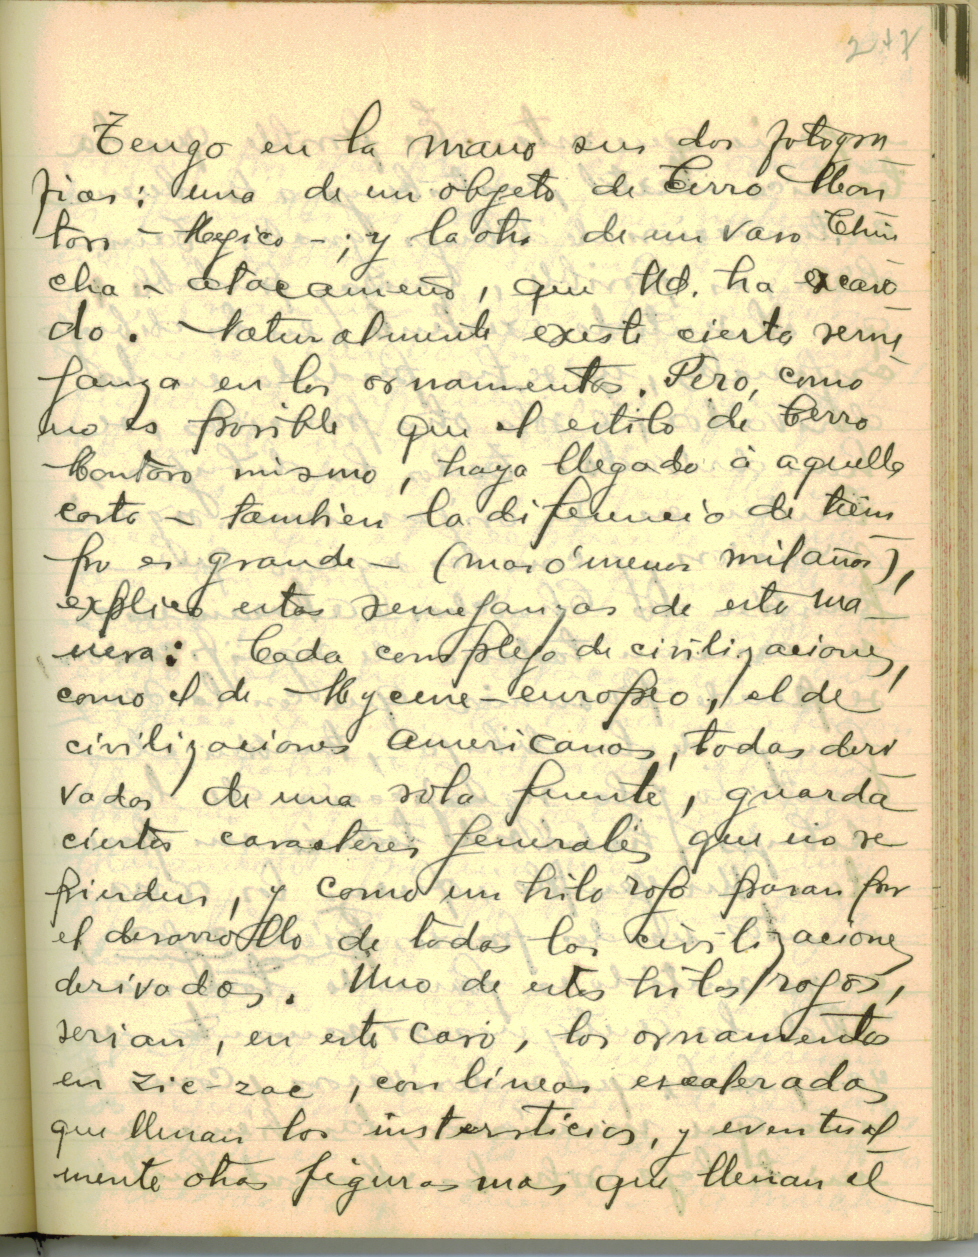 247
Tengo en la mano sus dos fotogra
fias: una de un objeto de Cerro Mon
toro – Mejico –; y la otra de un vaso Chin
cha – atacameño, que Ud. ha excava
do. Naturalmente existe cierta seme
janza en los ornamentos. Pero, como
no es posible que el estilo de Cerro
Montoro mismo, haya llegado á aquella
costa – tambien la diferencia de tiem
po es grande – (mas ó menos mil años),
explico estas semejanzas de esta ma
nera: Cada complejo de civilizaciones,
como el de Mycene-europeo, el de
civilizaciones americanas, todas deri
vadas de una sola fuente, guarda
ciertos caracteres generales que no se
pierden, y como un hilo rojo pasan por
el desarrollo de todas las civilizaciones
derivados. Uno de estos hilos rojos,
serian, en este caso, los ornamentos
en zic-zac, con líneas escaleradas
que llenan los intersticios, y eventual
mente otras figuras mas que llenan el